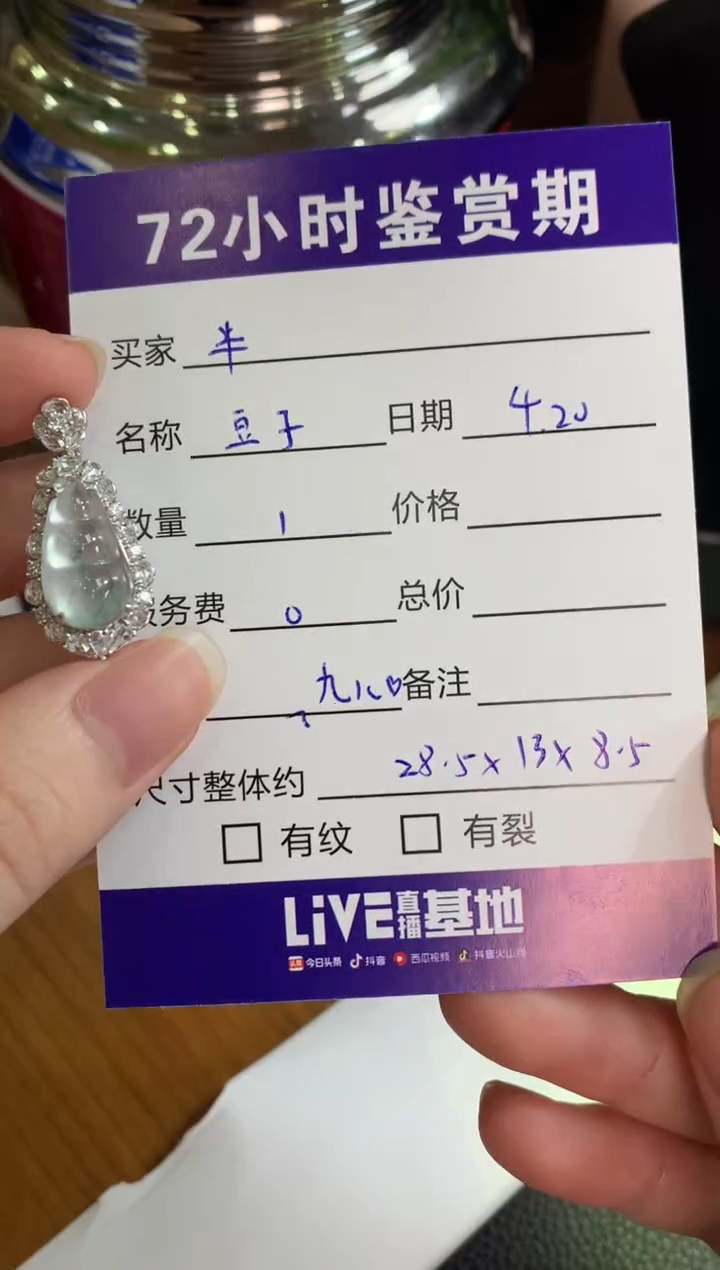 72小时鉴赏期
买家 半
名称 豆子 日期 4.20
数量 1 价格
务费 0 总价
备注
尺寸整体约 28.5x13x8.5
有纹 有裂
LiVE直播基地
今日头条 抖音 西瓜视频 抖音火山